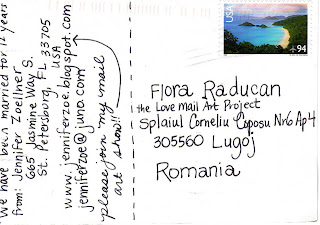 We have been married for 12 years
From: Jennifer Zoellner
665 Jasmine Way S.
St. Petersburg, FL 33705
USA
www.jenniferzoe.blogspot.com
jenniferzoe@juno.com
please join my mail
art show!!!
USA
+94
Flora Raducan
the Love Mail Art Project
Splaiul Corneliu Coposu Nr6 Ap4
305560 Lugoj
Romania